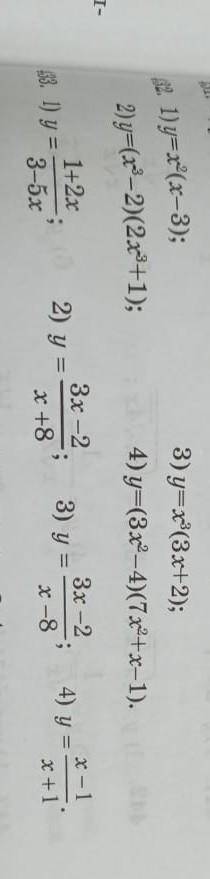 1) y=x²(x−3);  3) y=x³(3x+2);
2) y=(x³−2)(2x³+1);  4) y=(3x²−4)(7x²+x−1).
1) y = (1+2x)/(3−5x);  2) y = (3x−2)/(x+8);  3) y = (3x−2)/(x−8);  4) y = (x−1)/(x+1).